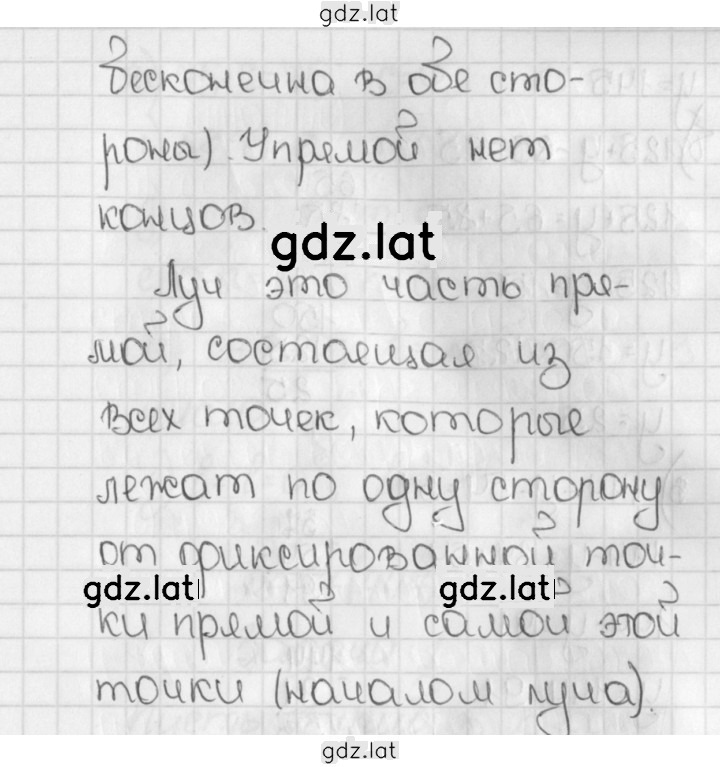 gdz.lat
бесконечна в обе сто-
роны). У прямой нет
концов.
gdz.lat
Луч это часть пря-
мой, состоящая из
всех точек, которые
лежат по одну сторону
от фиксированной точ-
gdz.lat gdz.lat
ки прямой и самой этой
точки (началом луча).
gdz.lat